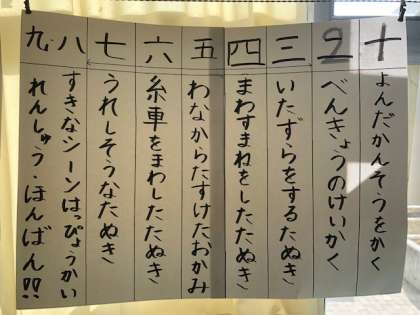 十 よんだかんそうをかく
2 べんきょうのけいかく
三 いたずらをするたぬき
四 まわすまねをしたたぬき
五 わなからたすけたおかみ
六 糸車をまわしたたぬき
七 うれしそうなたぬき
八 すきなシーンはっぴょうかい
九 れんしゅう・ほんばん!!